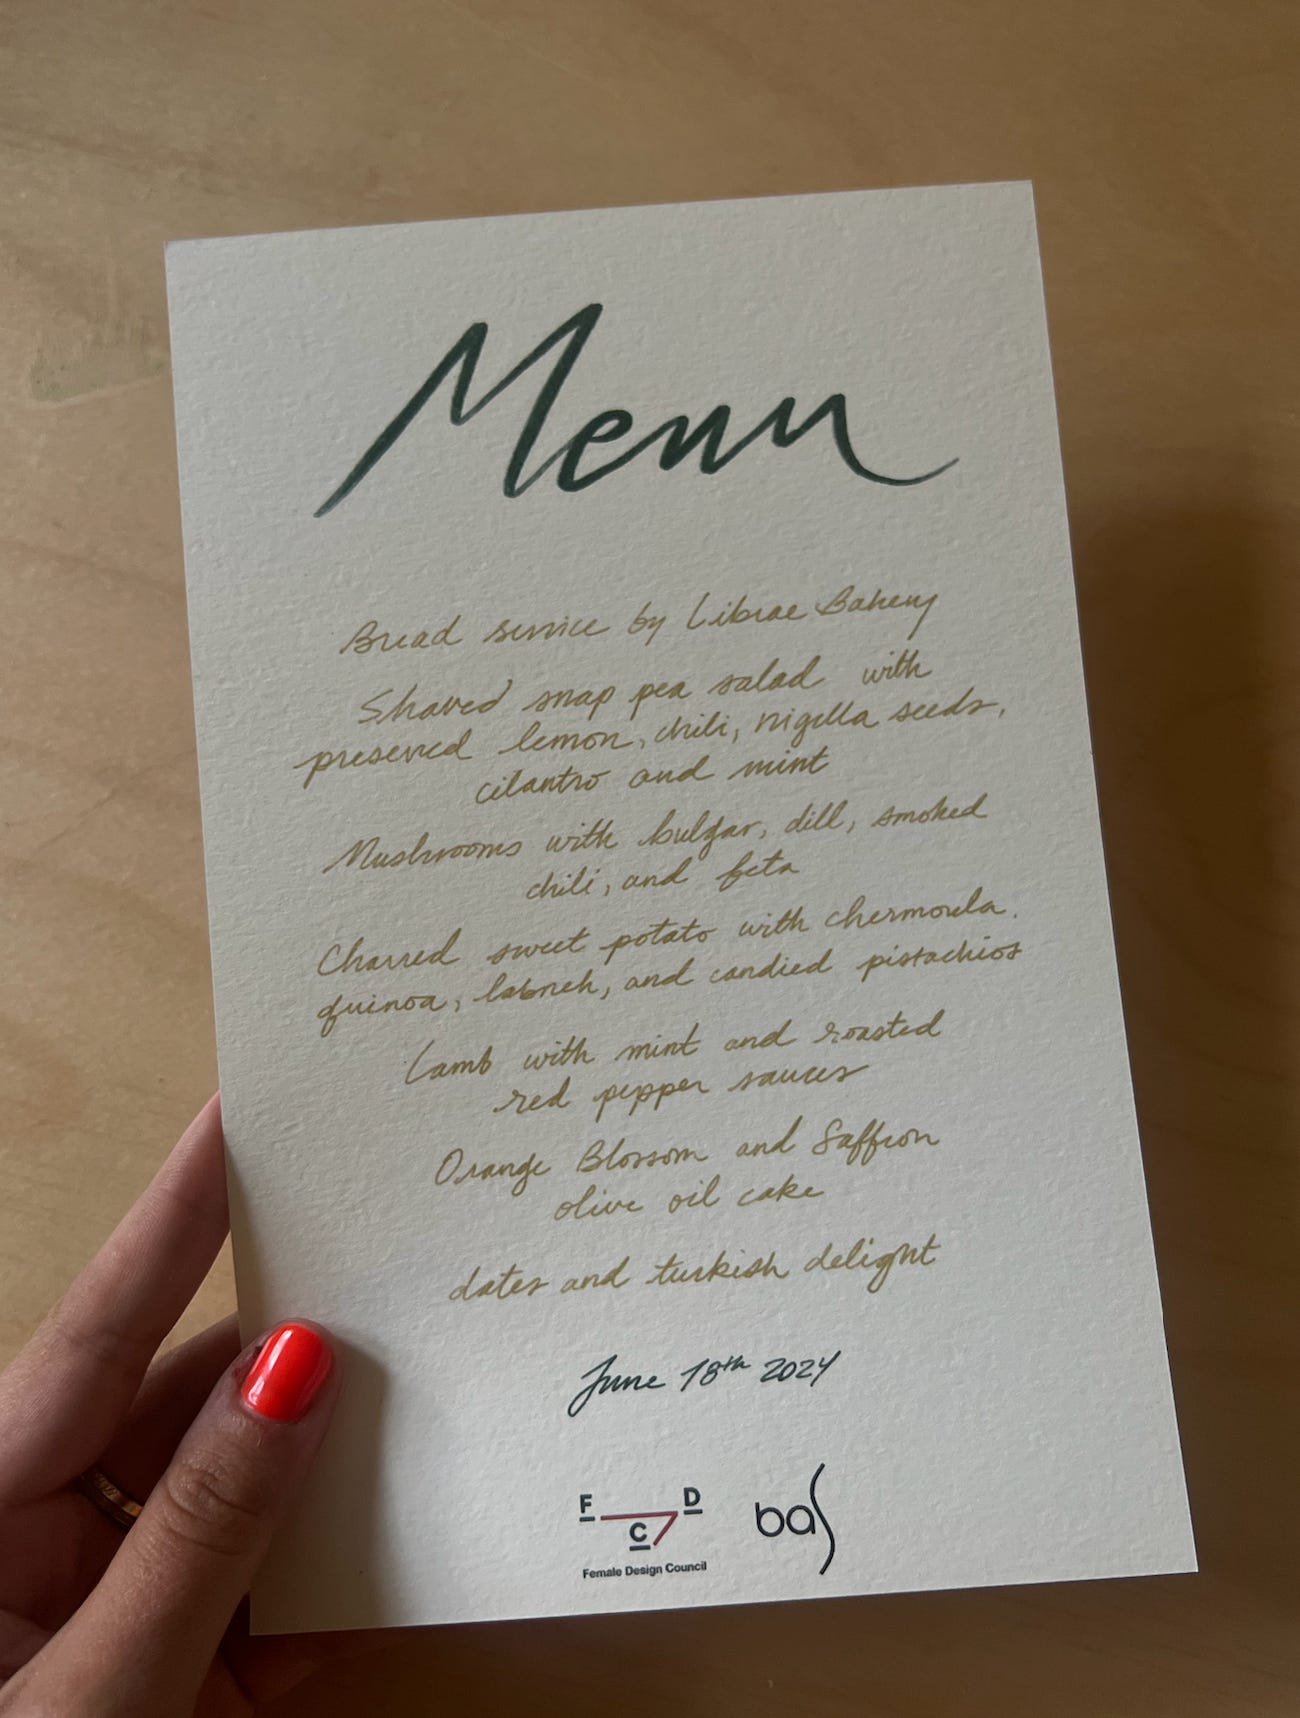 Menu
Bread service by Librae Bakery
Shaved snap pea salad with
preserved lemon, chili, nigella seeds,
cilantro and mint
Mushrooms with bulgar, dill, smoked
chili, and feta
Charred sweet potato with chermoula,
quinoa, labneh, and candied pistachios
Lamb with mint and roasted
red pepper sauces
Orange Blossom and Saffron
olive oil cake
dates and turkish delight
June 18th 2024
F D
C
Female Design Council
bas